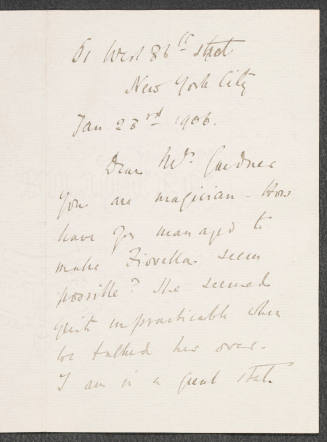 51 West 86th street
New York City
Jan 23rd 1906.
Dear Mrs Gardner
You are magician. How
have you managed to
make Fiorella seem
possible? She seemed
quite impracticable when
we talked her over.
I am in a great state